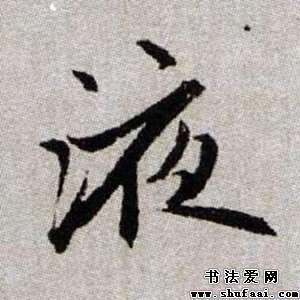 液
书法爱网
www.shufaai.com